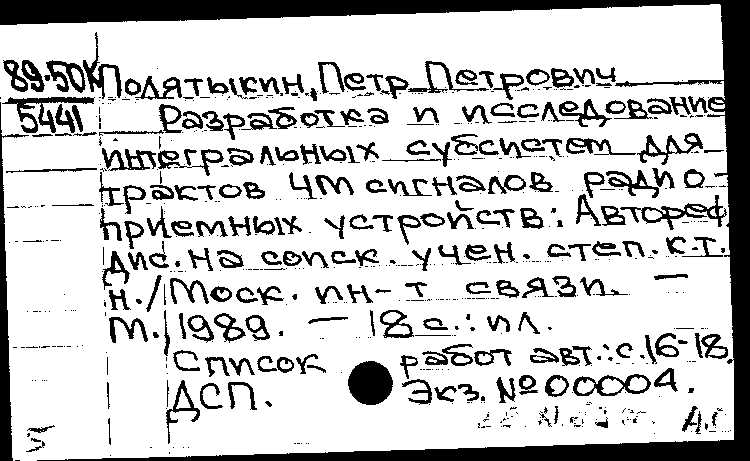 89-50К Полятыкин, Петр Петрович.
5441 Разработка и исследование
интегральных субсистем для
трактов ЧМ сигналов радио-
приемных устройств: Автореф.
дис. на соиск. учен. степ. к.т.
н./Моск. ин-т связи. —
М., 1989. — 18 с.: ил.
Список работ авт.: с.16-18.
ДСП. Экз. № 00004.
А.С
5